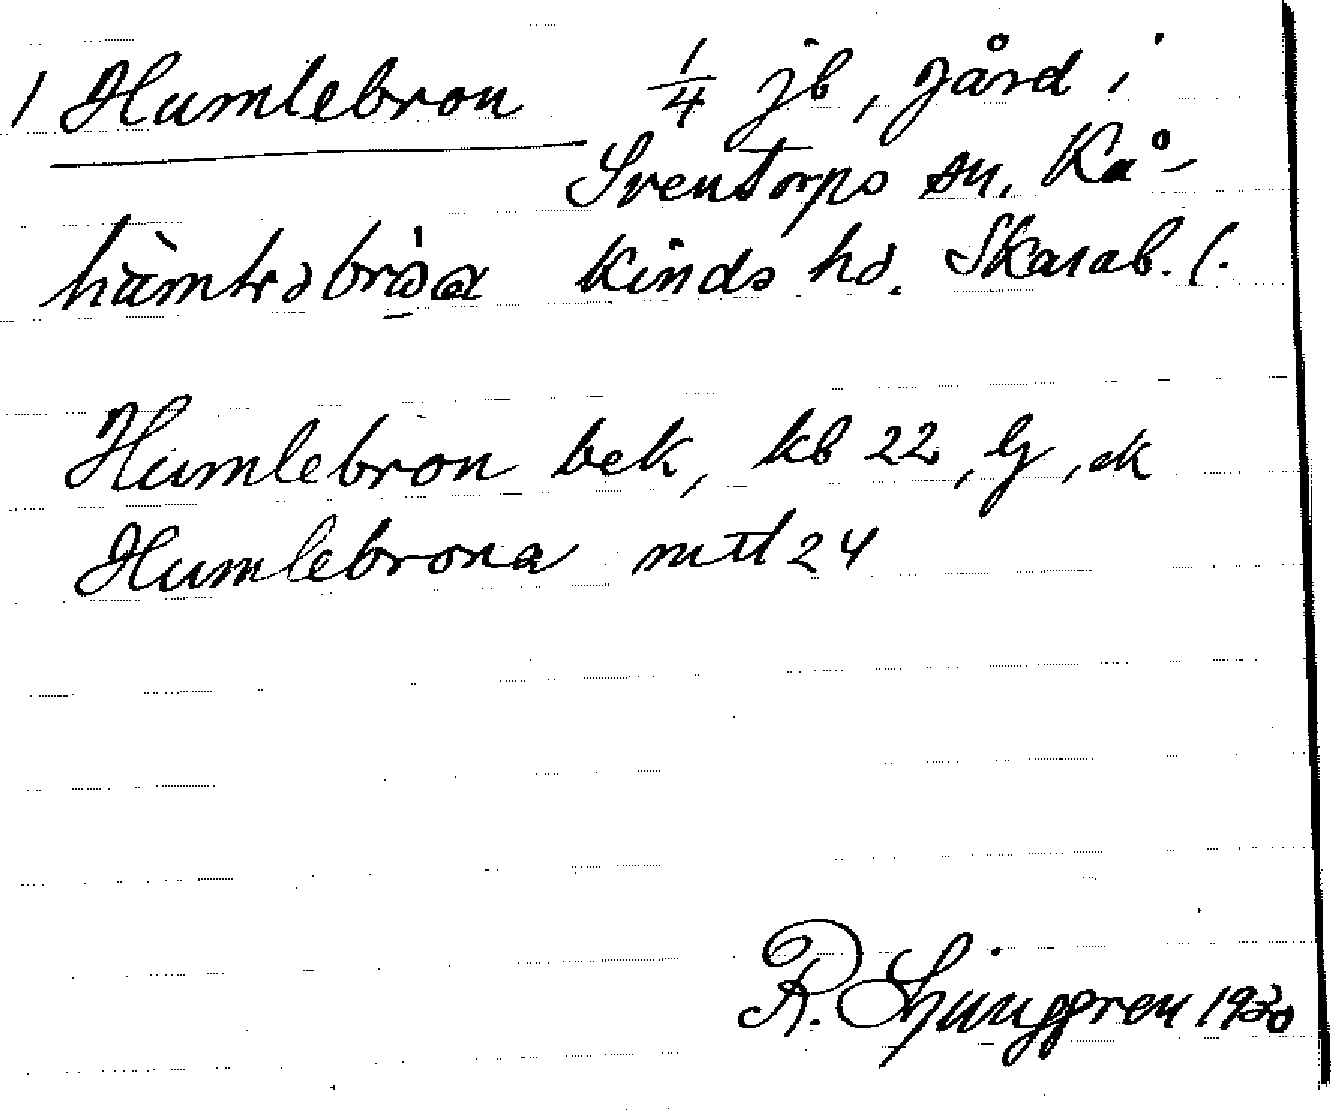 1 Humlebron 1/4 jb, gård i
Sventorps sn. Kå-
kinds hd. Skarab. l.
Humlebron bek, kb 22, lg, ek
Humlebrona mtl 24
R. Ljunggren 1930